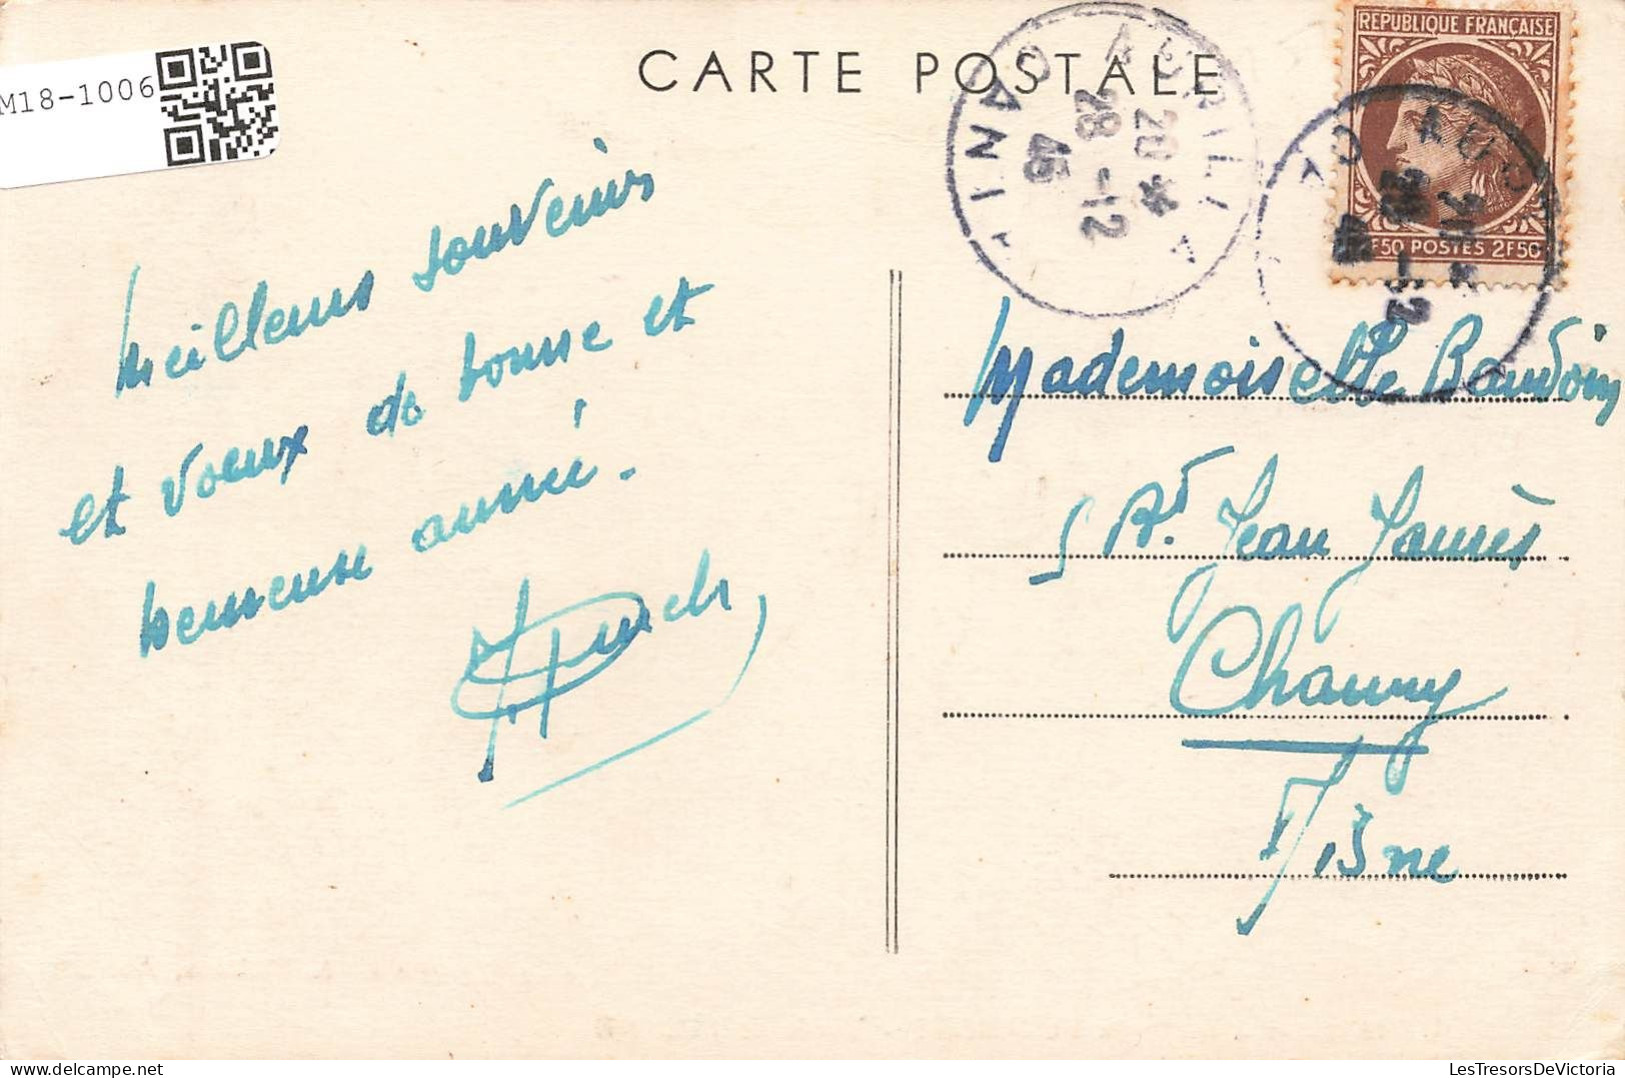 M18-1006
CARTE POSTALE
REPUBLIQUE FRANÇAISE
F50 POSTES 2F50
AURILLA
CANTAL
20 *
28 -12
45
Meilleurs souvenirs
et voeux de bonne et
heureuse année.
Mademoiselle Baudoin
5 Bd. Jean Jaurès
Chauny
Aisne
LesTresorsDeVictoria